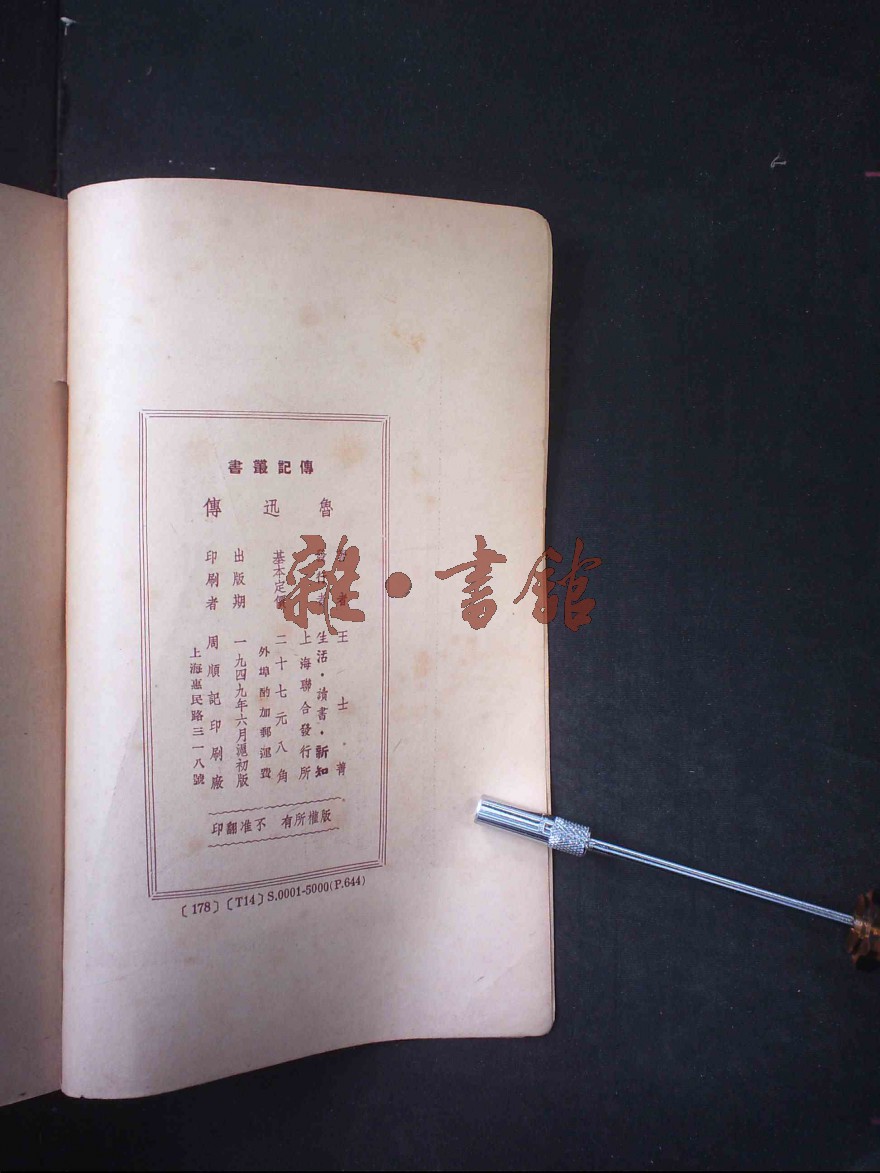 傳記叢書
魯迅傳
者 王士菁
生活·讀書·新知
上海聯合發行所
基本定價 二十七元八角
外埠酌加郵運費
出版期 一九四九年六月滬初版
印刷者 周順記印刷廠
上海惠民路三一八號
版權所有 不准翻印
〔178〕〔T14〕S.0001-5000(P.644)
雜·書館